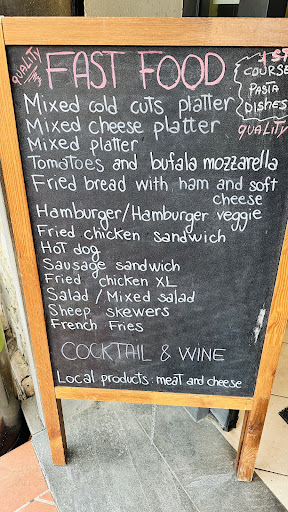 QUALITY
FAST FOOD
1° SS
COURSE
PASTA
DISHES
QUALITY
Mixed cold cuts platter
Mixed cheese platter
Mixed platter
Tomatoes and bufala mozzarella
Fried bread with ham and soft
cheese
Hamburger/Hamburger veggie
Fried chicken sandwich
Hot dog
Sausage sandwich
Fried chicken XL
Salad / Mixed salad
Sheep skewers
French Fries
COCKTAIL & WINE
Local products: meat and cheese